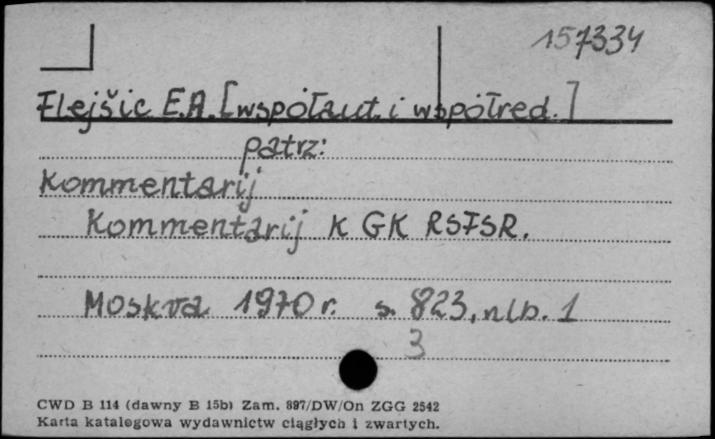 157334
Flejšic E.A. [współaut. i współred.]
patrz:
Kommentarij
Kommentarij K GK RSFSR.
Moskva 1970 r. s. 823, nlb. 1
3
CWD B 114 (dawny B 15b) Zam. 897/DW/On ZGG 2542
Karta katalogowa wydawnictw ciągłych i zwartych.